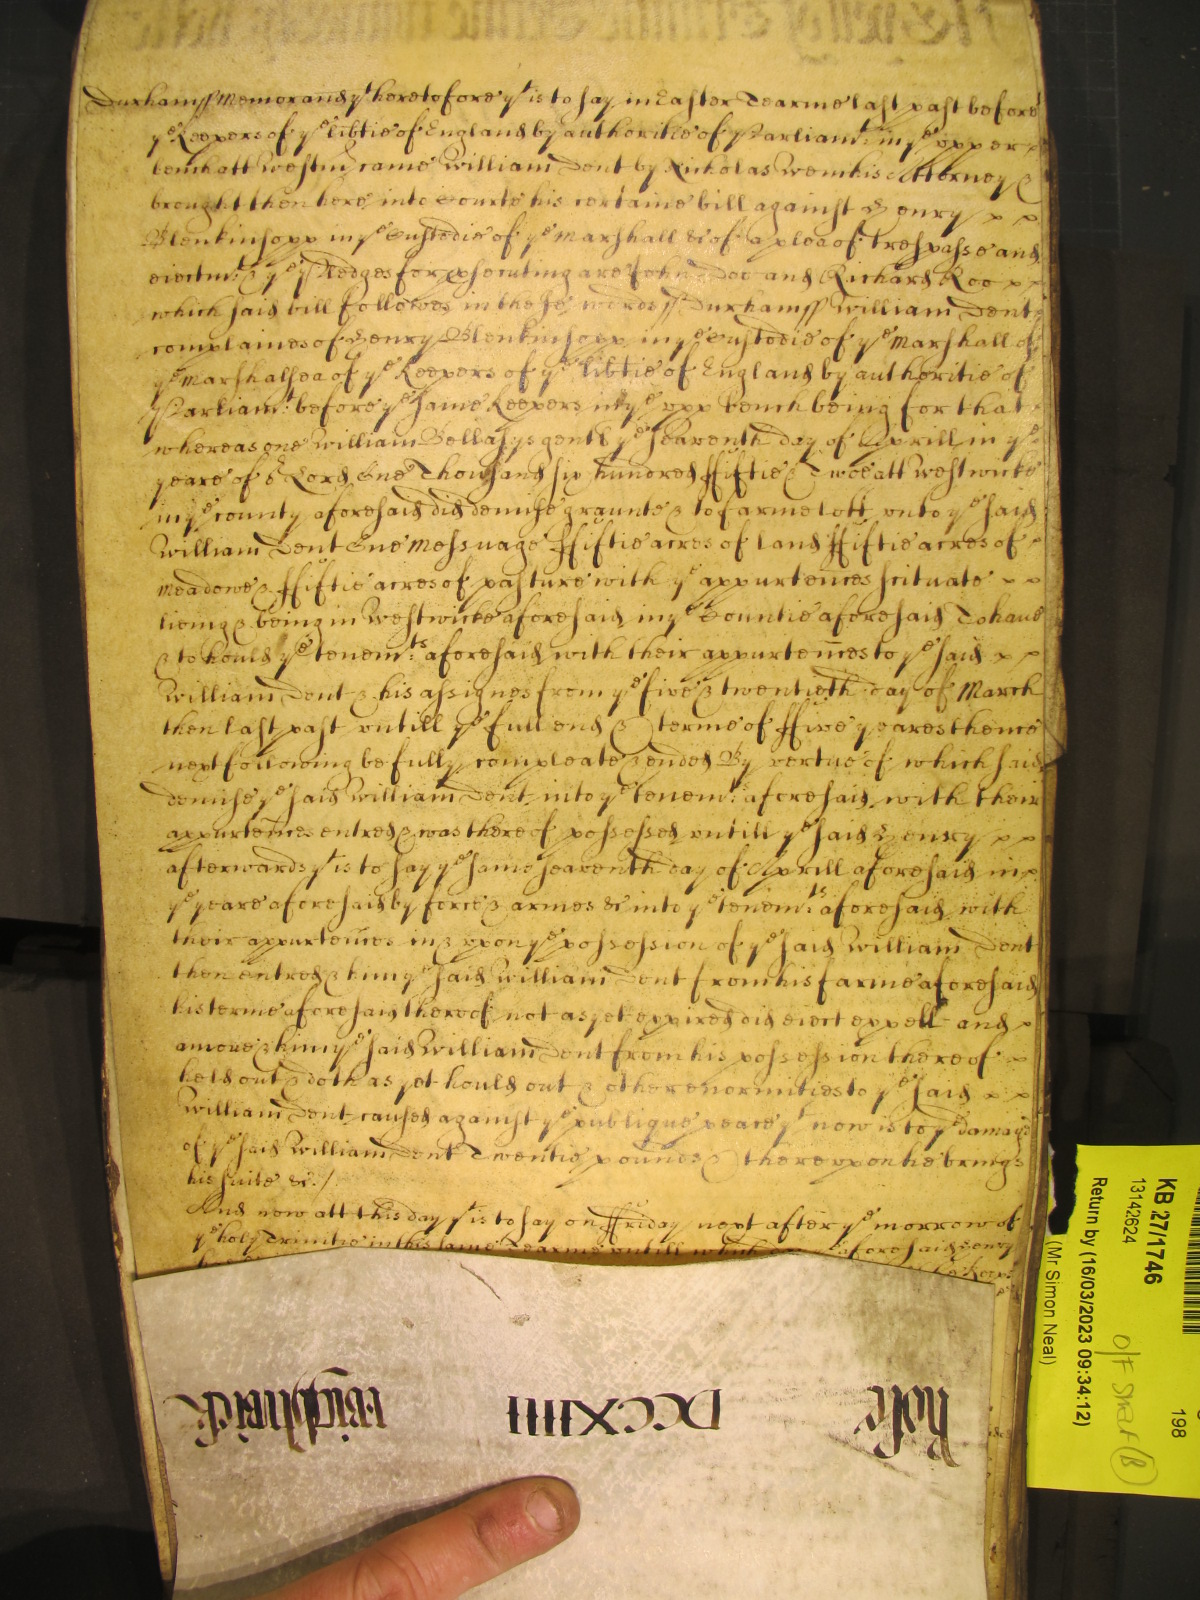 Durham ss Memorand yt heretofore yt is to say in Easter Tearme last past before
ye Keepers of ye libtie of England by authoritie of Parliamt in ye upper
bench att Westmr came William Dent by Nicholas Wemhis Attorney &
brought then here into Courte his certaine bill against Henry
Blenkinsopp in ye Custodie of ye Marshall &c of a plea of trespasse and
eiectmt & ye Pledges for psecuting are John Doo and Richard Roo
which said bill followes in these words ss Durham ss William Dent
complaines of Henry Blenkinsopp in ye Custodie of ye Marshall of
ye Marshalsea of ye Keepers of ye libtie of England by authoritie of
Parliamt before ye same Keepers in ye upp bench being for that
whereas one William Bellasys gentl ye seaventh day of Aprill in ye
yeare of or Lord One Thousand six hundred ffiftie & Twoe att Westwicke
in ye county aforesaid did demise graunte & to farme lett unto ye said
William Dent One Messuage ffiftie acres of land ffiftie acres of
meadowe & ffiftie acres of pasture with ye appurtences scituate
lieing & being in Westwicke aforesaid in ye Countie aforesaid To have
& to hould ye tenemts aforesaid with their appurtences to ye said
William Dent & his assignes from ye five & twentieth day of March
then last past untill ye full end & terme of ffive yeares thence
next following be fully compleate & ended By vertue of which said
demise ye said William Dent into ye tenemts aforesaid with their
appurtences entred & was thereof possessed untill ye said Henry
afterwards yt is to say ye same seaventh day of Aprill aforesaid in
ye yeare aforesaid by force & armes &c into ye tenemts aforesaid with
their appurtences in & upon ye possession of ye said William Dent
then entred & him ye said William Dent from his farme aforesaid
his terme aforesaid thereof not as yet expired did eiect expell and
amove & him ye said William Dent from his possession thereof
held out & doth as yet hould out & other enormities to ye said
William Dent caused against ye publique peace yt now is to ye damage
of ye said William Dent Twentie pounds & thereuppon he brings
his suite &c /
And now att this day yt is to say on ffriday next after ye morrow of
ye holy Trinitie in this same Tearme untill which aforesaid Henry
Rolle DCCXIIII Wightwick
KB 27/1746
13142624
Return by (16/03/2023 09:34:12)
(Mr Simon Neal)
198
O/F